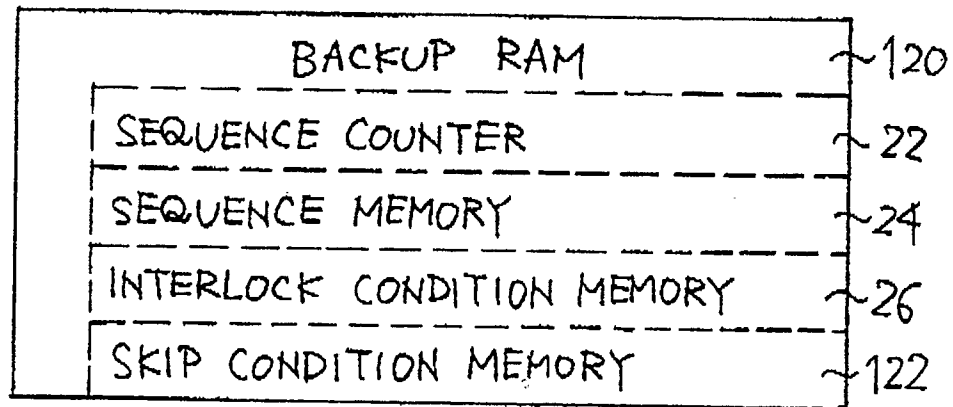 BACKUP RAM 120
SEQUENCE COUNTER 22
SEQUENCE MEMORY 24
INTERLOCK CONDITION MEMORY 26
SKIP CONDITION MEMORY 122